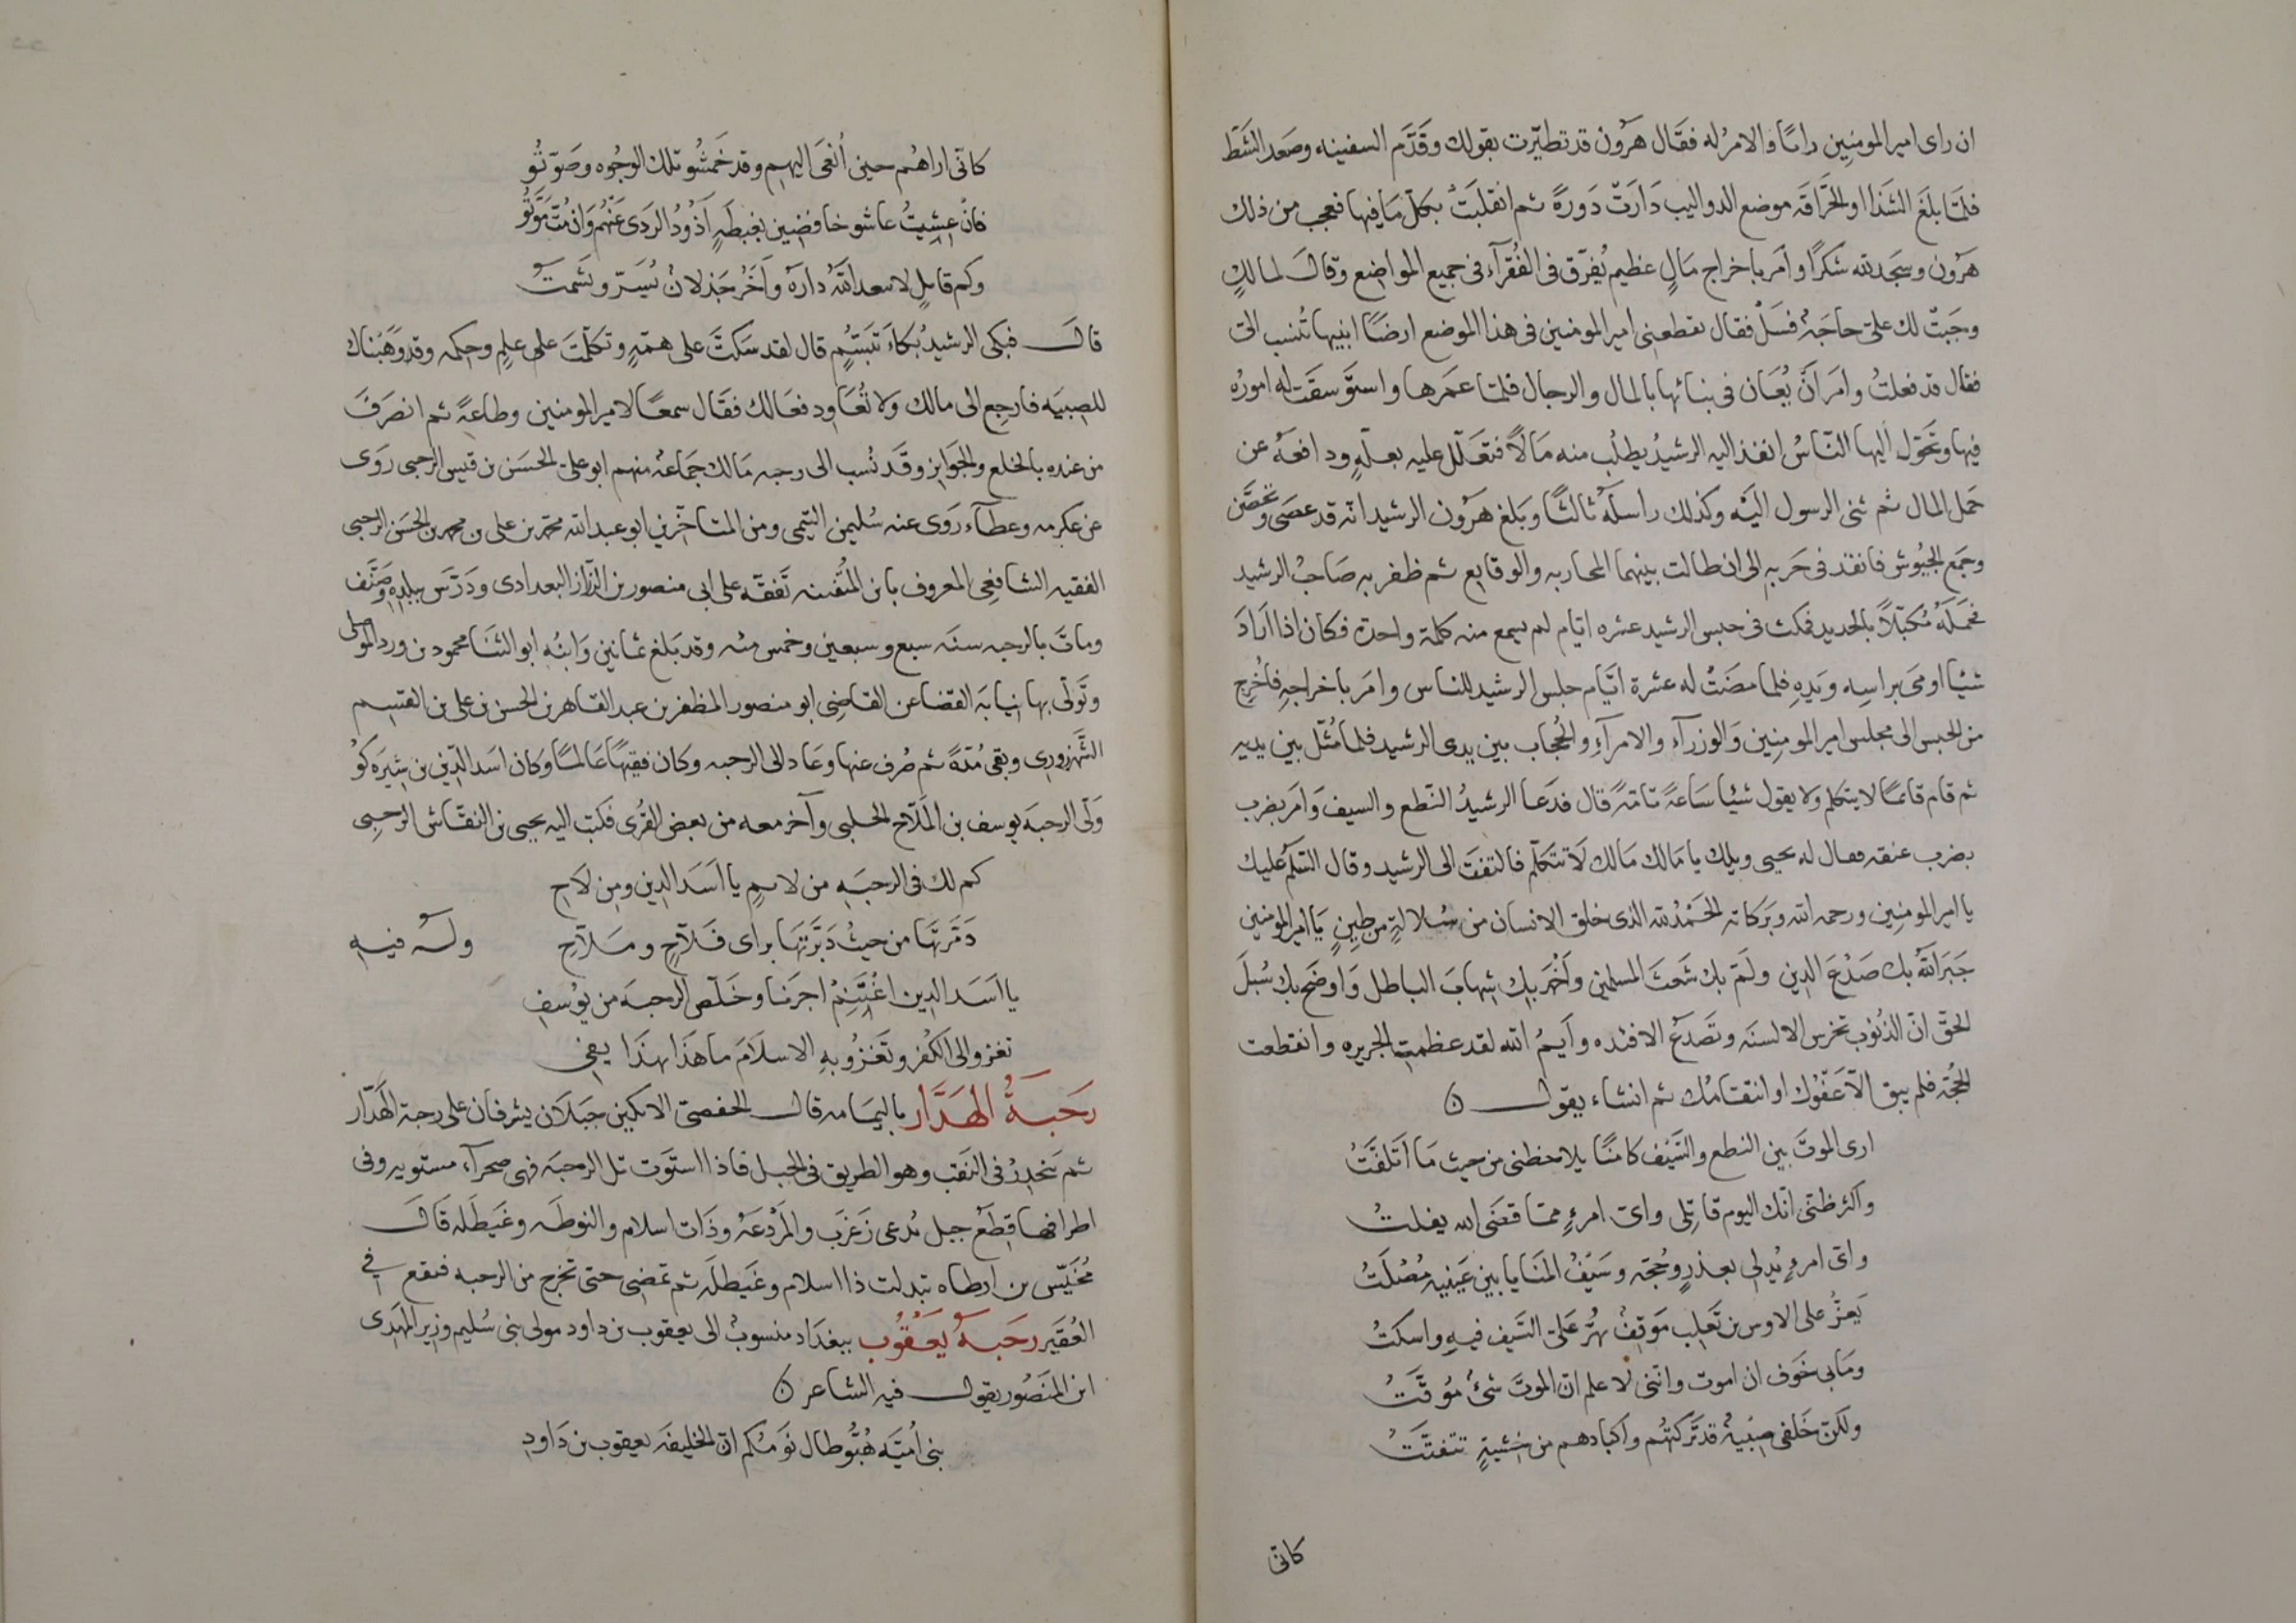 ان راى امير المومنين دامًا والامر له فقال هرون قد تطيّرت بقولك وقَدَّم السفينه وصَعد الشط
فلمّا بلغَ الشذا او الحَرّاقَه موضع الدواليب دَارَتْ دَورةً ثم انقلبَتْ بكلّ مَا فيها فعجب من ذلك
هَرُون وسَجَد لله شكرًا وامر باخراج مَالٍ عظيم يُفرّق فى الفُقرآء فى جميع المواضع وقال لمالكٍ
وجَبتْ لك علىّ حاجَة فسَلْ فقال تقطعنى امير المومنين فى هذا الموضع ارضًا ابنيها تُنسب الىّ
فقال قد فعلتُ وامَر اَنْ يُعَان فى بنائها بالمال والرجال فلمّا عمَرها واستوَسقَت له امورُه
فيها وتحَوّل اليها النّاسُ انفذ اليه الرشيدُ يطلُب منه مَالًا فتعَلّل عليه بعلّهٍ ودافعَهُ عن
حَمل المال ثم ثنى الرسول اليَه وكذلك راسلَهُ ثالثًا وبَلغ هَرُون الرشيد انّه قد عصَى وتحصَّن
وجَمع الجيُوش فانفذ فى حَربهِ الى ان طالت بينهما المحاربه والوقايع ثم ظفر به صَاحبُ الرشيد
فحَمَلَهُ مُكبّلًا بالحديد فمكث فى حبس الرشيد عشره ايّام لم يسمع منه كلمة واحدة فكان اذا ارَادَ
شيئا اومَى براسِه ويَدِه فلما مضَتْ له عشرة ايّام جلس الرشيد للناس وامَر باخراجهِ فاخُرج
من الحبس الى مجلس امير المومنين وَالوزرآء والامرآءِ والحُجاب بين يدى الرشيد فلما مُثّل بين يديه
ثم قام قائمًا لا يتكلم ولا يقول شيئا سَاعةً تامّةً قال فدَعا الرشيدُ النّطع والسيف وَامَر بضرب
بضرب عنقه فقال له يحيى ويلك يا مَالك مَالك لَا تتكلّم فالتفتَ الى الرشيد وقال السّلم عليك
يا امير المومنين ورحمه الله وبَركاته الحَمْدُ لله الذى خلق الانسان من سُلالةٍ من طينٍ يَا امير المومنين
جَبَر اللّهُ بك صَدْعَ الدين ولَمّ بك شَعثَ المسلمين وَاخْمَد بك شِهابَ الباطل وَاوضَح بك سُبلَ
الحقّ انّ الذُنوب تخرس الالسنَه وتَصدَعُ الافئده وَايمُ الله لقد عظمتِ الجريره وانقطعت
الحُجّه فلم يبق الّا عَفْوُك او انتقامُك ثم انشاء يقول
ارى الموتَ بين النطع والسَّيف كامنًا يلاحظنى من حيث مَا اَتَلفَّتُ
واكثر ظنّى انّك اليوم قاتِلى واىّ امرءٍ ممّا قضَى الله يفلتُ
واىّ امرءٍ يُدلى بعذرٍ وحُجّه وسَيفُ المنَايا بين عَينيه مُصْلَتُ
يَعزُّ على الاوس بن تَغلِب مَوَقِفٌ يُهَزُّ عَلىّ السَّيف فيهِ واسكتُ
ومَا بى خَوف ان اموت وانّنى لا علم انّ الموتَ شئٌ مُوقَّتُ
ولكنّ خَلفى صِبْيهً قد تَركتُهم واَكبادهم من خشيةٍ تتفتّتُ
كانّى
كانّى اراهُم حين اُنْعَى اليهم وقد خَمشُو تلك الوجُوه وصَوّتُو
فانْ عِشِتُ عاشو خافضِين بغبطَهٍ اَذُودُ الرَدَى عَنْهُم وَان مُتّ مَوّتُو
وكم قايلٍ لا سعد اللّهُ دارَهُ وآخَرُ جَذلانٌ يُسَرّ ويَشمتُ
قال فبكى الرشيدُ بُكاءَ تَبَسُّمٍ قال لقد سَكتَّ على همّةٍ وتكلّمْتَ على علمٍ وحِكمه وقد وَهَبْناك
للصِبيَه فارجِع الى مالك وَلا تُعَاود فعَالك فقَال سمعًا لامير المومنين وطاعةً ثم انصرَفَ
من عنده بالخلع والجوَايز وقَد نُسب الى رحبه مَالك جمَاعة منهم ابو على الحسَن بن قيس الرحبى روَى
عن عكرمه وعطآء روَى عنه سُليمن التيمى ومن المتاخّرين ابو عبد الله محمّد بن على بن محمد بن الحسَن الرحبى
الفقيه الشافعى المعروف بابن المُتْفننه تَفقّه على ابى منصور بن الرَزّاز البغدادى ودَرّس ببلدِهِ وَصَنّف
وماتَ بالرحبه سنَه سبع وسبعين وخمس مئه وقد بَلغ ثمانين وَابنُه ابو الثنَا محمود بن ورد الموصلى
وتَولّى بها نيابَة القضا عن القاضِى ابو منصور المظفر بن عبد القاهر بن الحسن بن على بن القسِم
الشَّهزورى وبقى مُدّةً ثم صُرف عنها وعَاد الى الرحبه وكان فقيهًا عَالمًا وكان اسَد الدّين بن شيَركوُ
وَلّى الرحبَه يوسف بن المَلاّح الحلبى وآخر معه من بعض القُرى فكتب اليه يحيى بن النقّاش الرَحبِى
كم لك فى الرحبَهِ من لايمٍ يا اسَدَ الدين ومِن لَاحِ
دَمّرتَها من حيثُ دَبّرتَها براى فَلاّحٍ ومَلاّحِ ولَهُ فيهِ
يا اسَد الدين اغْتَنِمْ اجرَنا وخَلّص الرحبَه من يوُسفِ
تغزو الى الكُفر وتَغزُو بِهِ الاسلَامَ مَا هَذَا بهذَا يفى
رحَبَةُ الهَدَّار باليمَامه قال الحفصىّ الابكين جَبَلَان يشرفان على رحبة الهَدّار
ثم يَنحدِرُ فى النَقبِ وهو الطريق فى الجبل فاذا استوَت تل الرحبَه فهى صحرآء مستويه وفى
اطرافها قِطَعُ جبل يُدعى زَغرَب والمَرْدعَهُ وذَات اسلام والنوطَه وغيَطلَه قال
مُخَيّس بن ارطاه تبدلت ذا اسلام وغَيطلَه ثم تمَضِى حتى تخرج من الرحبه فتقع فى
العُقيَر رحَبَةُ يَعقُوب ببغدَاد منسوبٌ الى يعقوب بن داود مولى بنى سُليم وزير المهَدى
ابن المَنصُور يقول فيه الشاعر
بنى اُميّه هُبُّو طال نَومُكم انّ الخليفه يعقوب بن دَاودِ